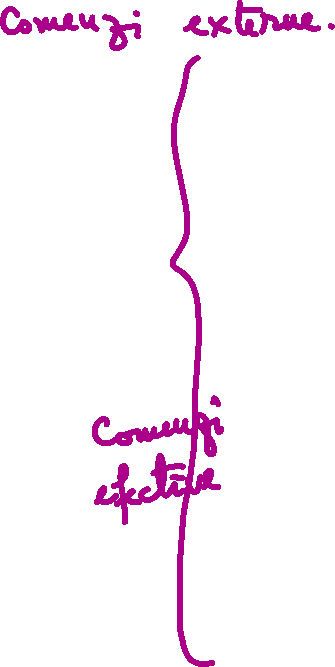 Comenzi externe.
Comenzi
efective